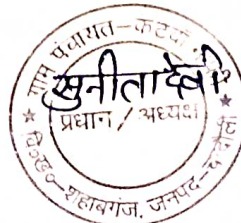 ग्राम पंचायत-कटवां
सुनीता देवी
प्रधान / अध्यक्ष
वि०ख०-शहाबगंज, जनपद-चन्दौली